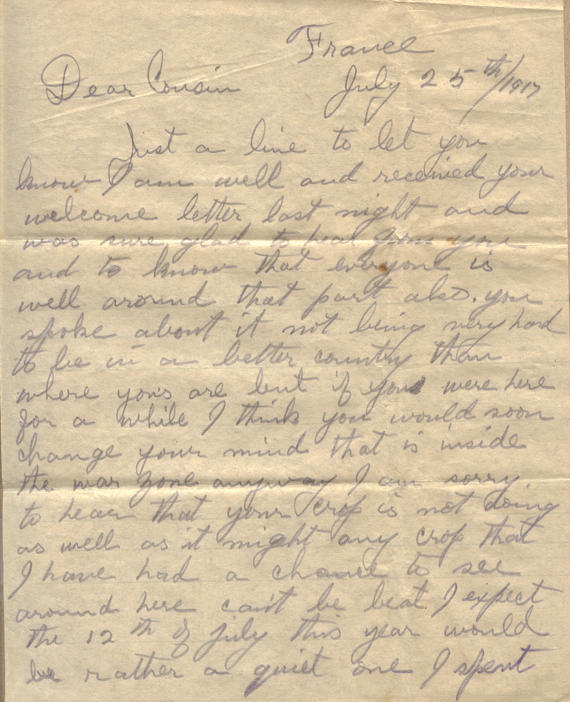 France
Dear Cousin July 25th/1917
Just a line to let you
know I am well and received your
welcome letter last night and
was sure glad to hear from you
and to know that everyone is
well around that part also. you
spoke about it not being very hard
to be in a better country than
where you's are but if you were here
for a while I think you would soon
change your mind that is inside
the war zone anyway I am sorry
to hear that your crop is not doing
as well as it might any crop that
I have had a chance to see
around here can't be beat I expect
the 12th of July this year would
be rather a quiet one I spent